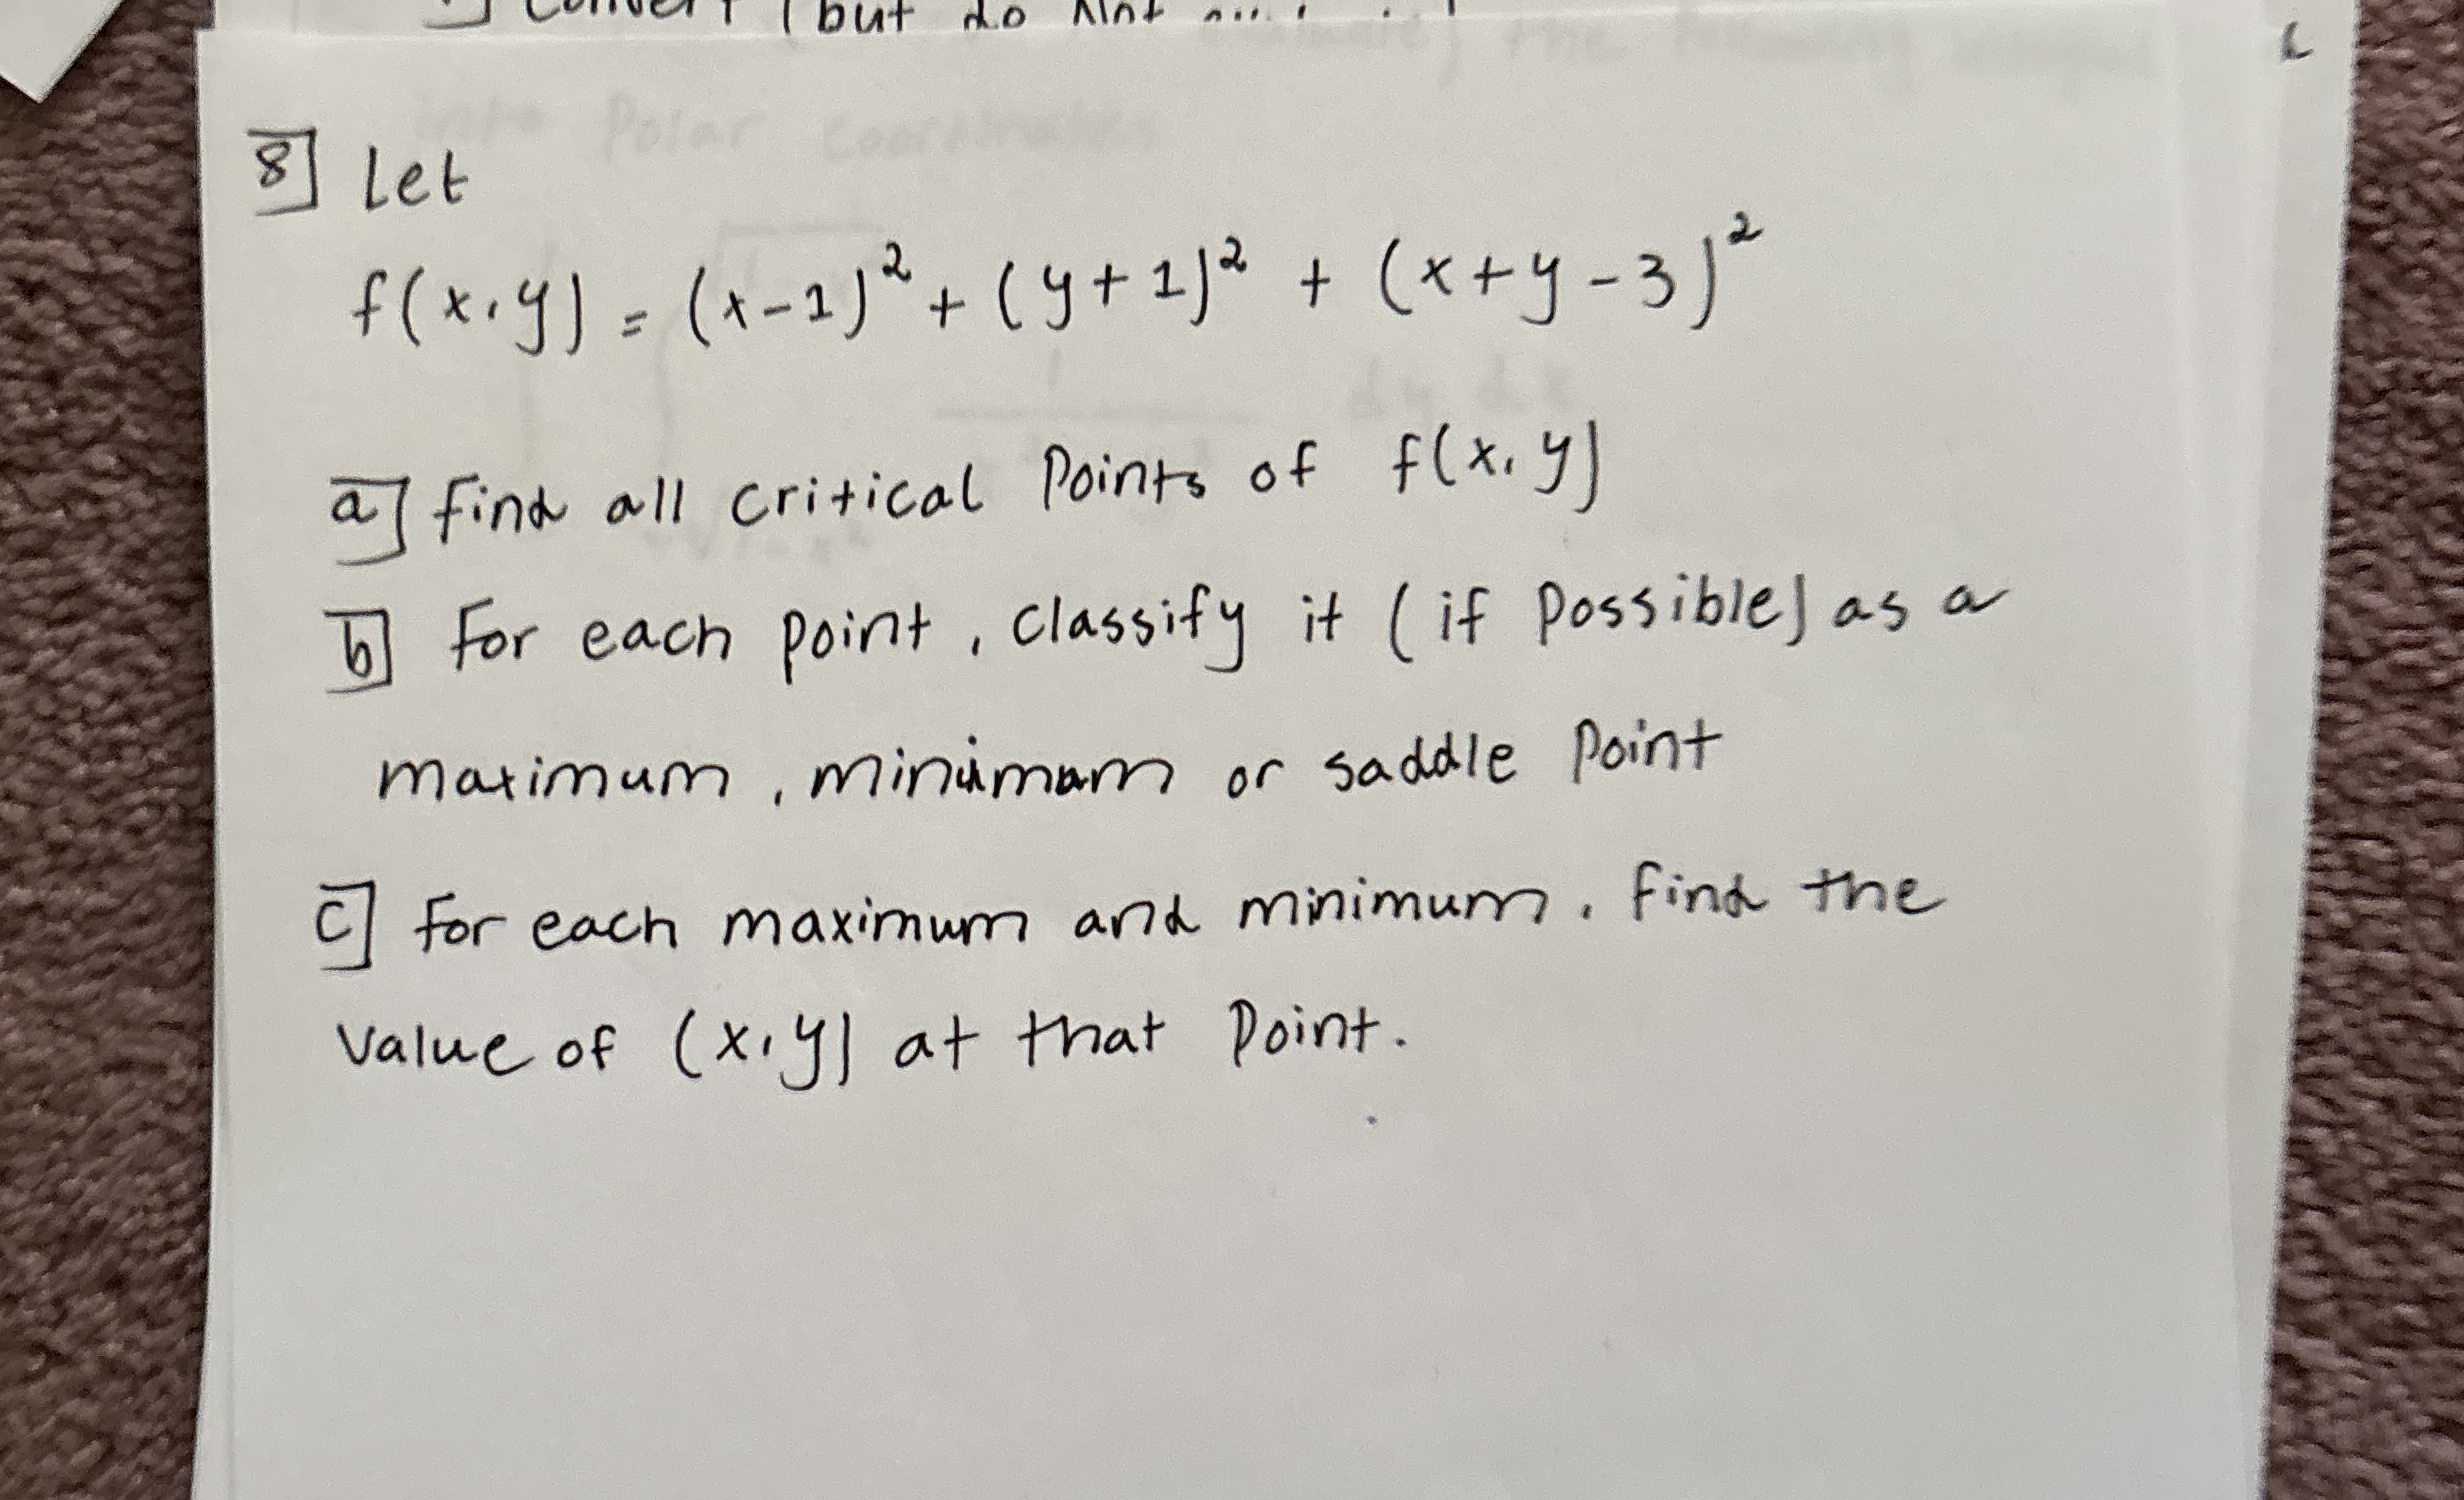 Convert (but do not
into Polar coordinates
8] Let
f(x,y) = (x-1)² + (y+1)² + (x+y-3)²
dy dx
a] Find all critical Points of f(x,y)
b] For each point, classify it (if Possible) as a
maximum, minimum or saddle Point
c] For each maximum and minimum, find the
Value of (x,y) at that Point.